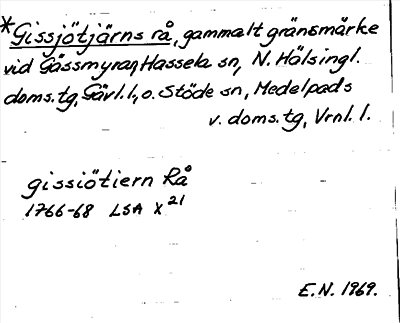 *Gissjötjärns rå, gammalt gränsmärke
vid Gåssmyran, Hassela sn, N. Hälsingl.
doms.tg, Gävl.l., o. Stöde sn, Medelpads
v. doms.tg, Vrnl. l.
gissiötiern Rå
1766-68 LSA X 21
E.N. 1969.